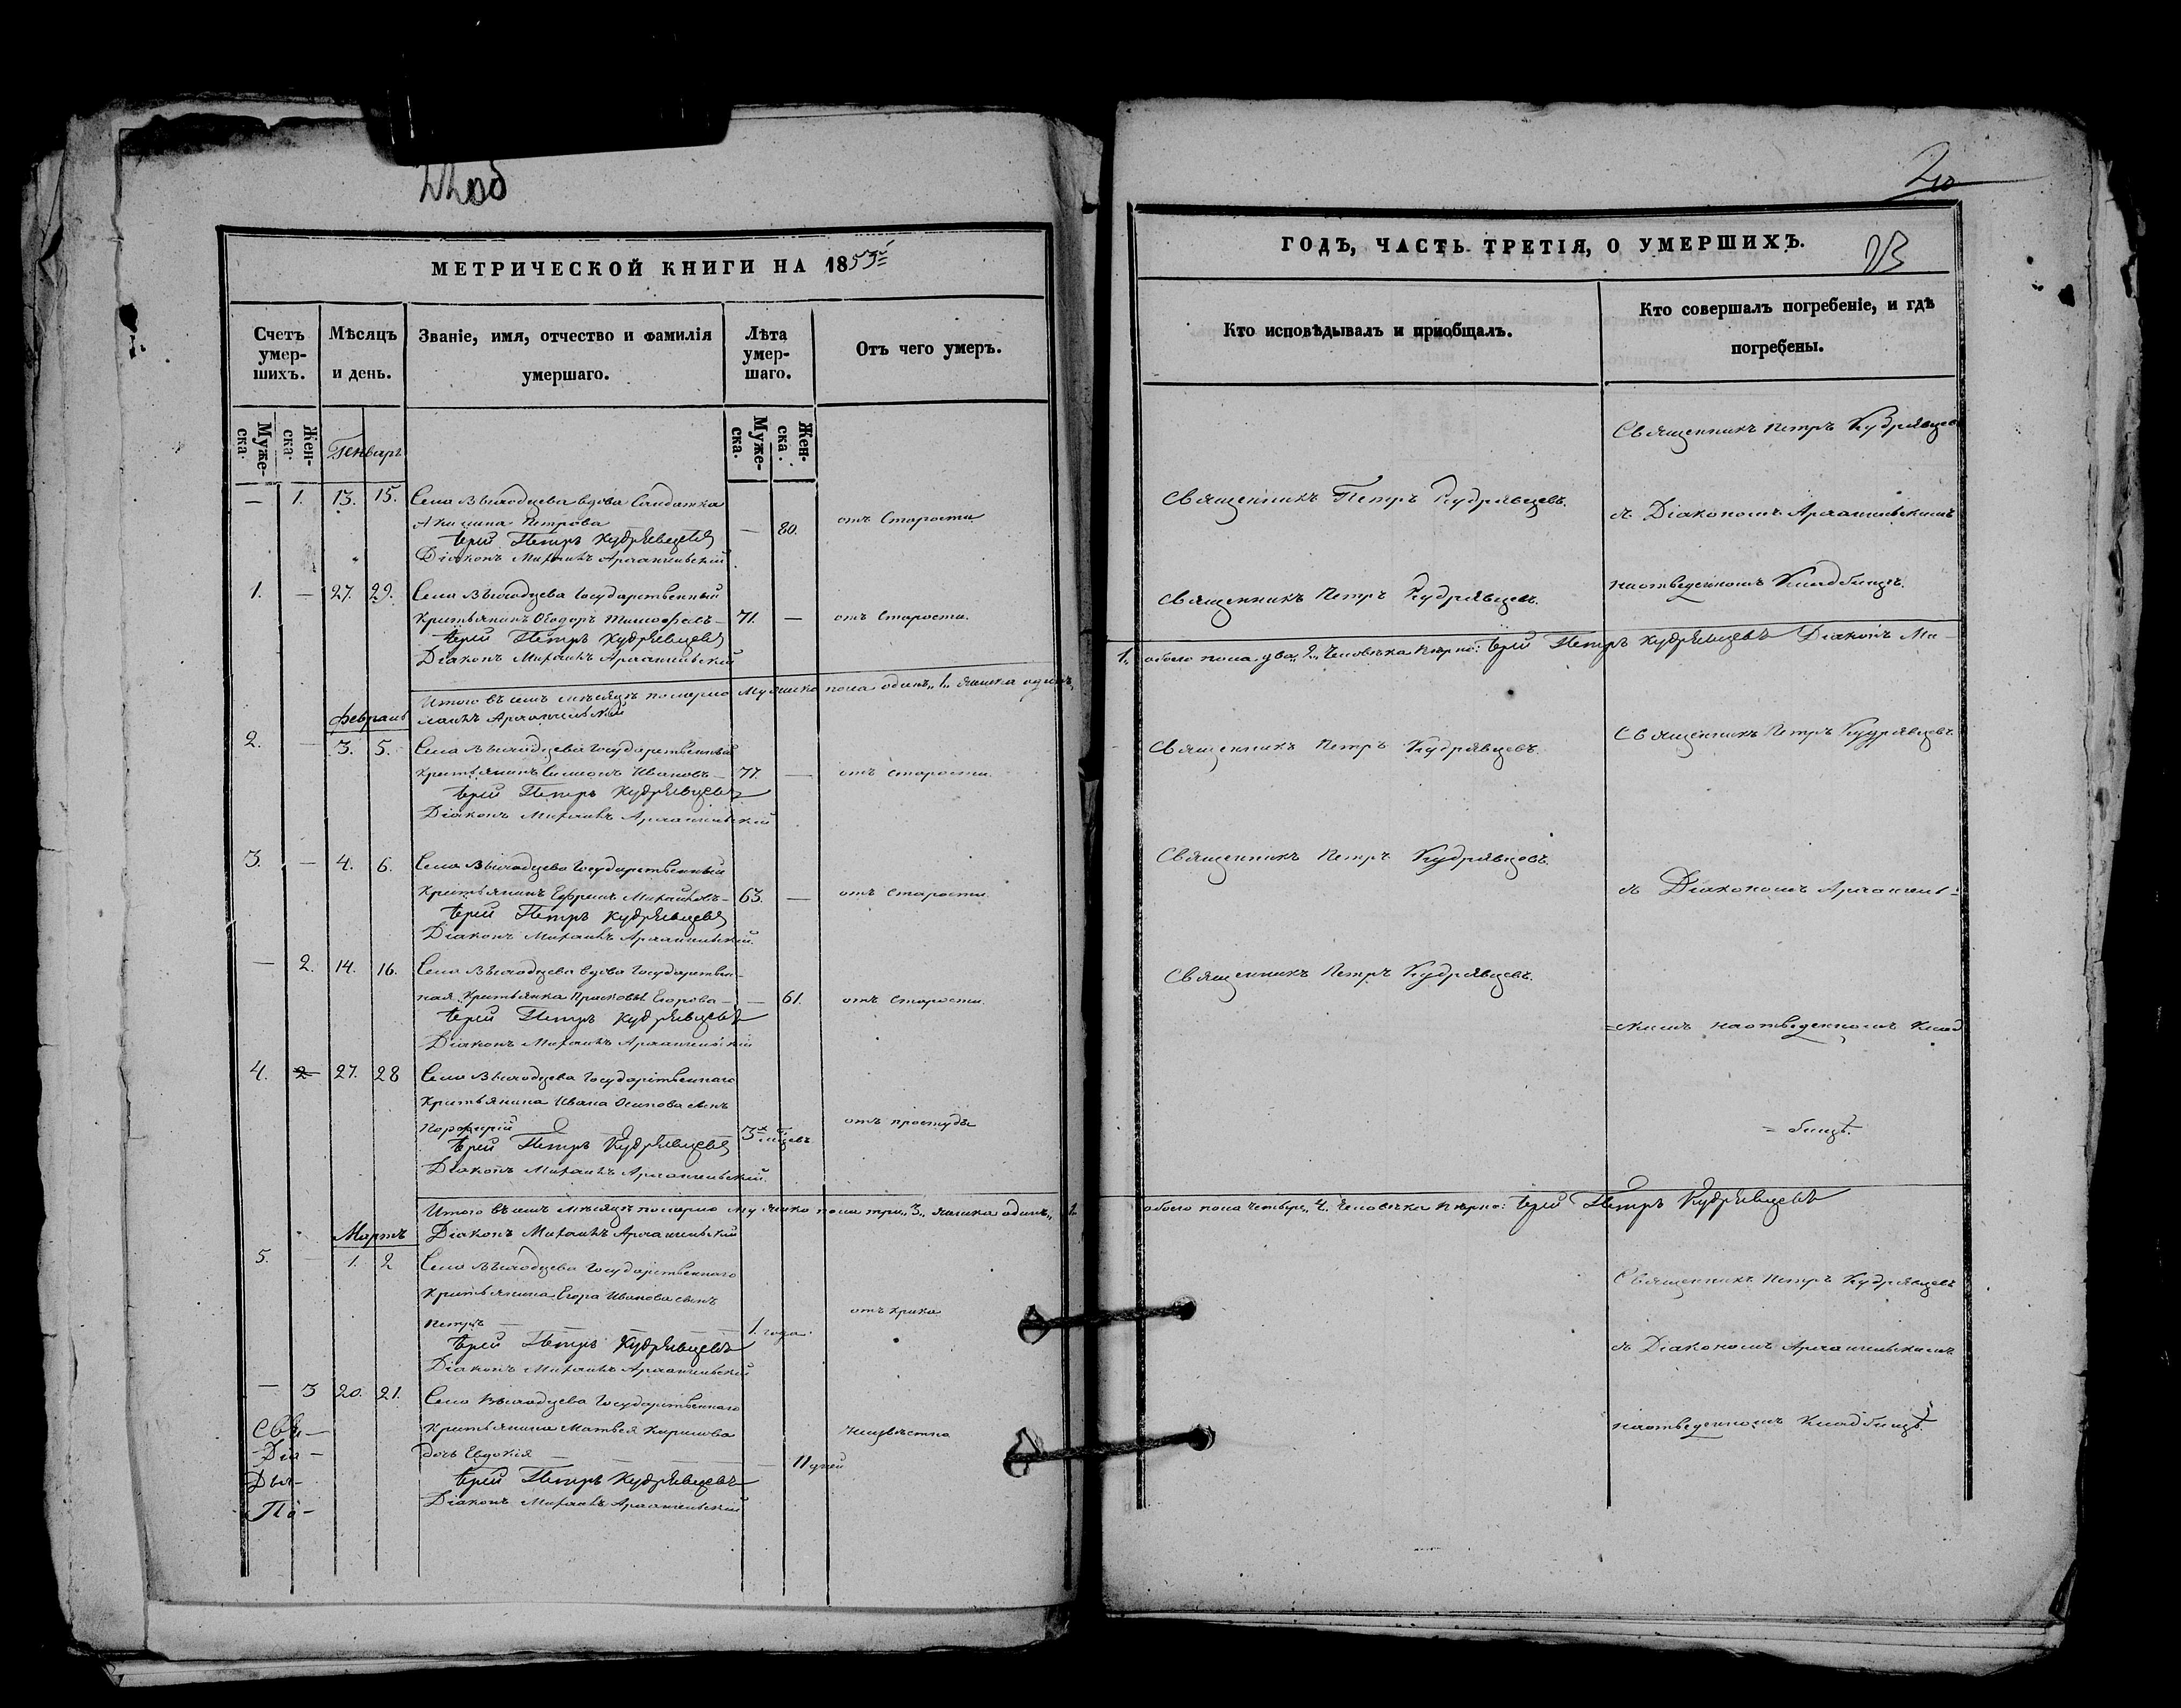 МЕТРИЧЕСКОЙ КНИГИ НА 1853й
Счетъ умер-шихъ.
Мѣсяцъ и день.
Званіе, имя, отчество и фамилія умершаго.
Лѣта умер-шаго.
Отъ чего умеръ.
Муже-ска.
Жен-ска.
Генварь
Муже-ска.
Жен-ска.
— 1. 13. 15. Села Выходцева вдова Солдатка
Акилина Петрова — 80. отъ Старости
Іерей Петръ Кудрявцевъ
Діаконъ Михаилъ Архангельскій
1. — 27. 29. Села Выходцева Государственный
Крестьянинъ Ѳеодоръ Тимофеевъ — 71. — отъ Старости.
Іерей Петръ Кудрявцевъ
Діаконъ Михаилъ Архангельскій
Итого въ семъ мѣсяцѣ померло мужеска пола одинъ „1„ женска одинъ,
Февраль
хаилъ Архангельскій
2. — 3. 5. Села Выходцева Государственный
Крестьянинъ Симеонъ Ивановъ — 77. — отъ старости.
Іерей Петръ Кудрявцевъ
Діаконъ Михаилъ Архангельскій
3. — 4. 6. Села Выходцева Государственный
Крестьянинъ Ефремъ Михайловъ — 63. — отъ старости.
Іерей Петръ Кудрявцевъ
Діаконъ Михаилъ Архангельскій.
— 2. 14. 16. Села Выходцева вдова Государствен-
ная Крестьянка Прасковья Егорова — — 61. отъ старости.
Іерей Петръ Кудрявцевъ
Діаконъ Михаилъ Архангельскій
4. 27. 28 Села Выходцева Государственнаго
Крестьянина Ивана Осипова сынъ
Порфирій 3х мѣсецевъ отъ простуды
Іерей Петръ Кудрявцевъ
Діаконъ Михаилъ Архангельскій.
Итого въ семъ мѣсяцѣ померло мужеска пола три „3„ женска одинъ„ 1.
Мартъ
Діаконъ Михаилъ Архангельскій
5. — 1. 2 Села Выходцева Государственнаго
Крестьянина Егора Иванова сынъ
Петръ — 1. года. отъ крика
Іерей Петръ Кудрявцевъ
Діаконъ Михаилъ Архангельскій
— 3 20. 21. Села Выходцева Государственнаго
Крестьянина Матвея Карпова неизвѣстно
дочь Евдокія — — 11 дней
Іерей Петръ Кудрявцевъ
Діаконъ Михаилъ Архангельскій
Діа—
Дья—
По—
ГОДЪ, ЧАСТЬ ТРЕТІЯ, О УМЕРШИХЪ.
Кто исповѣдывалъ и пріобщалъ.
Кто совершалъ погребеніе, и гдѣ погребены.
Священникъ Петръ Кудрявцевъ
Священникъ Петръ Кудрявцевъ.
съ Діакономъ Архангельскимъ
на отведенномъ Кладбищѣ.
Священникъ Петръ Кудрявцевъ.
1. обоего пола два „2„ человѣка вѣрно: Іерей Петръ Кудрявцевъ Діаконъ Ми-
Священникъ Петръ Кудрявцевъ.
Священникъ Петръ Кудрявцевъ.
Священникъ Петръ Кудрявцевъ.
съ Діакономъ Архангель=
Священникъ Петръ Кудрявцевъ.
=скимъ на отведенномъ клад
= бищѣ.
обоего пола четыре „4„ человѣка вѣрно: Іерей Петръ Кудрявцевъ
Священникъ Петръ Кудрявцевъ
съ Діакономъ Архангельскимъ
на отведенномъ Кладбищѣ.